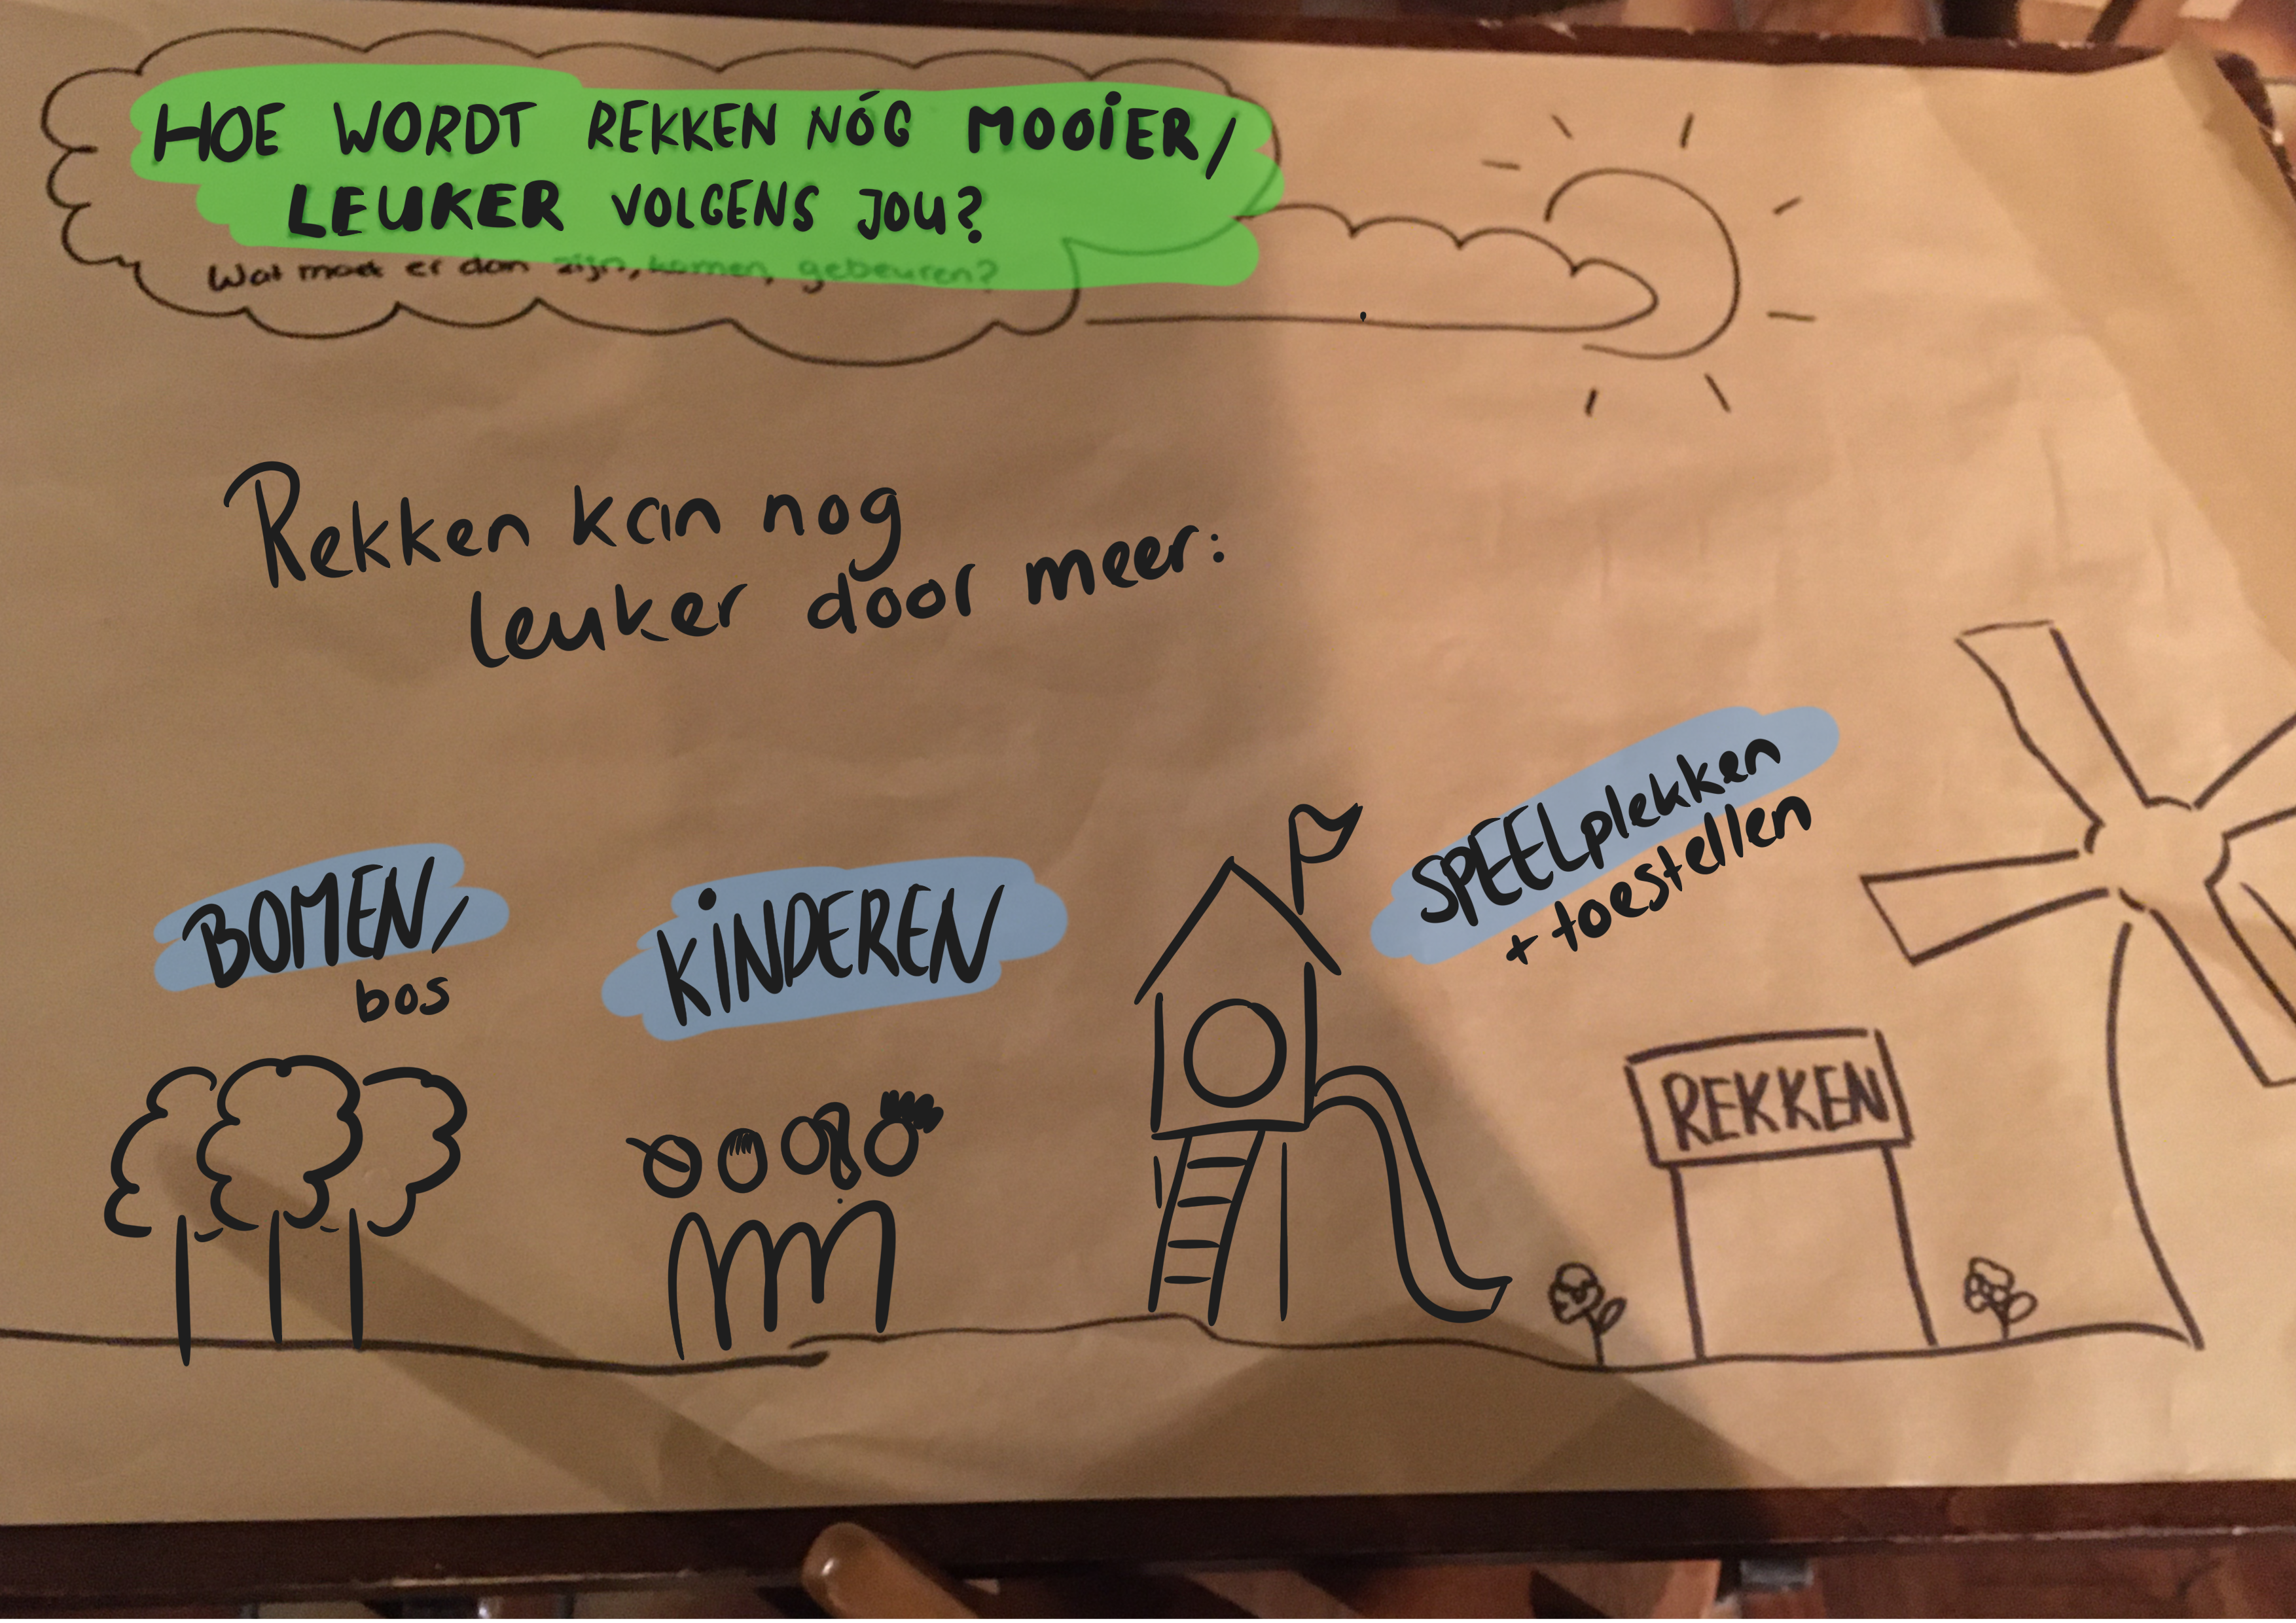 HOE WORDT REKKEN NÓG MOOIER/
LEUKER VOLGENS JOU?
Wat moet er dan zijn, komen, gebeuren?
Rekken kan nog
leuker door meer:
BOMEN/
bos
KINDEREN
SPEELplekken
+ toestellen
REKKEN